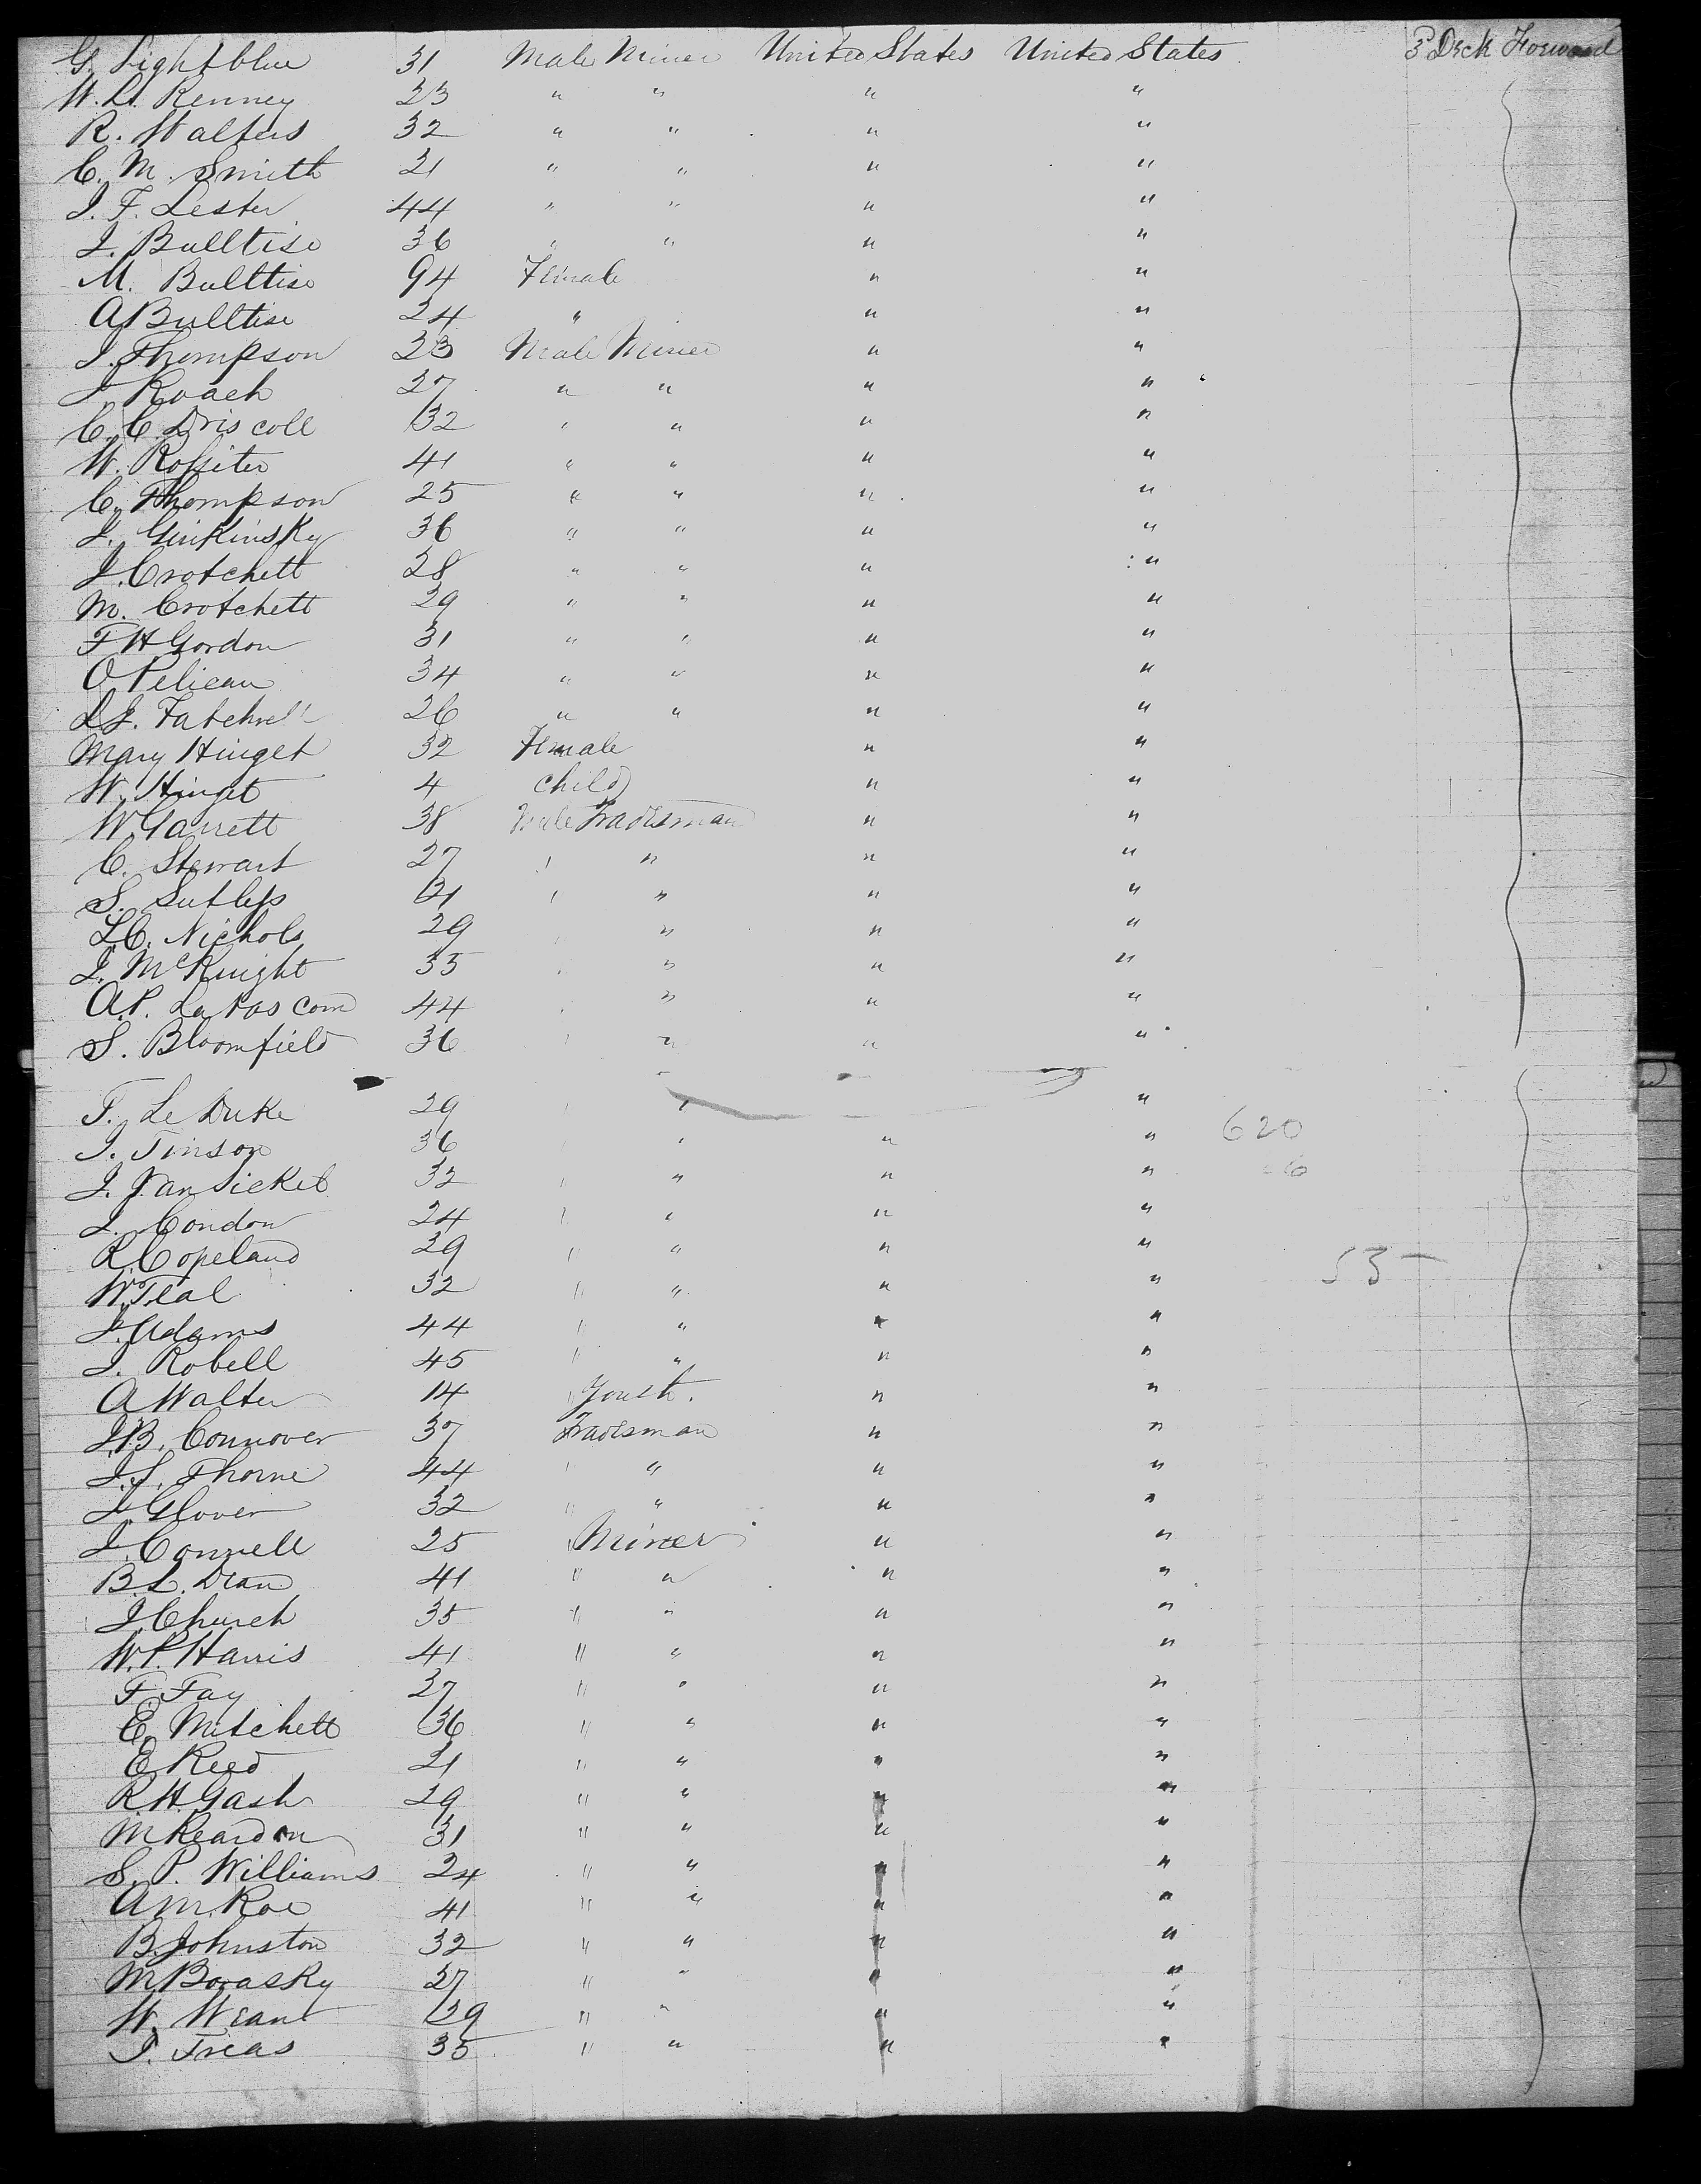 G. Lightblue 31 Male Miner United States United States 3d Deck Forward
W. H. Kenney 23 " " " "
R. Walters 32 " " " "
C. M. Smith 21 " " " "
J. F. Lester 44 " " " "
J. Bulltise 36 " " " "
M. Bulltise 94 Female " "
A Bulltise 24 " " "
J. Thompson 23 Male Miner " "
J Roach 27 " " " "
C. C. Driscoll 32 " " " "
W. Rossiter 41 " " " "
C. Thompson 25 " " " "
J. Ginkinsky 36 " " " "
J. Crotchett 28 " " " "
M. Crotchett 29 " " " "
F H Gordon 31 " " " "
O Pelican 34 " " " "
26 " " " "
Mary Hinget 32 Female " "
W. Hinget 4 child " "
W. Garrett 38 Male Tradesman " "
C. Stewart 27 " " " "
S. 31 " " " "
L. C. Nichols 29 " " " "
J. McKnight 35 " " " "
A. P. 44 " " " "
S. Bloomfield 36 " " " "
F. Le Duke 29 " " "
J. Tinson 36 " " " " 620
J. Van Sickel 32 " " " "
J. Condon 24 " " " "
R. Copeland 29 " " " " 53
W. Teal 32 " " " "
J. Adams 44 " " " "
J. Robell 45 " " " "
A Walter 14 " Youth. " "
J. B. Connover 37 Tradesman " "
J. S. Thorne 44 " " " "
J Glover 32 " " " "
J. Connell 25 " Miner " "
B. L. Dean 41 " " " "
J. Church 35 " " " "
W. P. Harris 41 " " " "
F. Fay 27 " " " "
E. Mitchell 36 " " " "
E Reed 21 " " " "
R. H. Gash 29 " " " "
M Reardon 31 " " " "
S. P. Williams 24 " " " "
A M. Roe 41 " " " "
B. Johnston 32 " " " "
M Borasky 27 " " " "
W. Wean 29 " " " "
J. Treas 35 " " " "